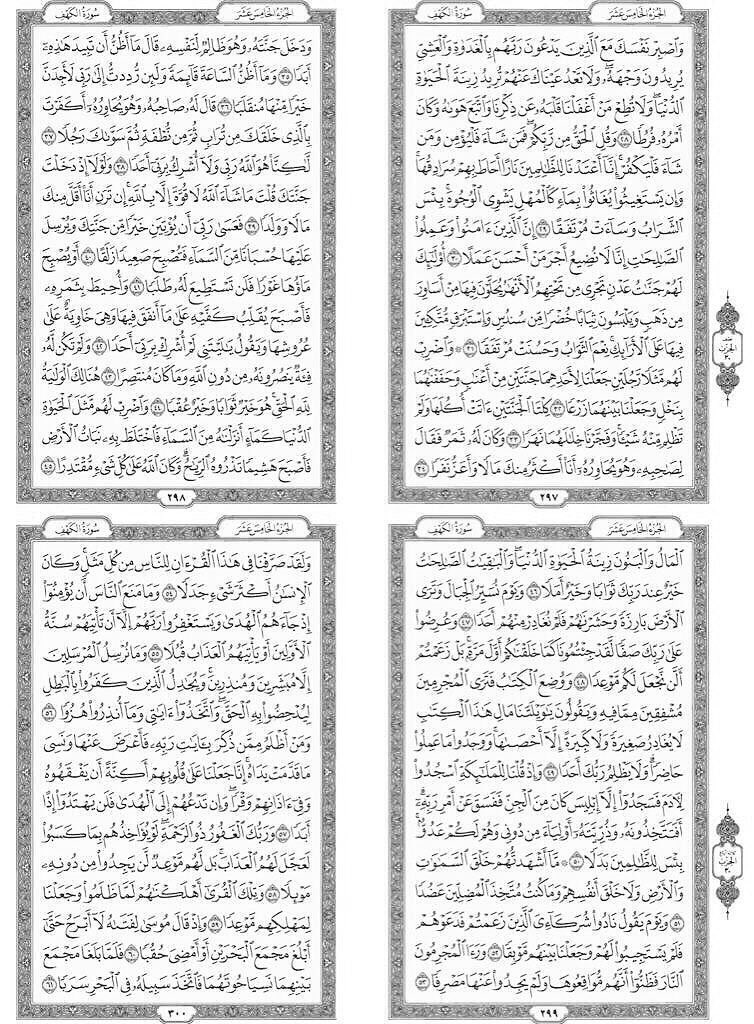 سُورَةُ الكَهْفِ
الجُزْءُ الخَامِسَ عَشَرَ
وَٱصْبِرْ نَفْسَكَ مَعَ ٱلَّذِينَ يَدْعُونَ رَبَّهُم بِٱلْغَدَوٰةِ وَٱلْعَشِيِّ
يُرِيدُونَ وَجْهَهُۥ ۖ وَلَا تَعْدُ عَيْنَاكَ عَنْهُمْ تُرِيدُ زِينَةَ ٱلْحَيَوٰةِ
ٱلدُّنْيَا ۖ وَلَا تُطِعْ مَنْ أَغْفَلْنَا قَلْبَهُۥ عَن ذِكْرِنَا وَٱتَّبَعَ هَوَىٰهُ وَكَانَ
أَمْرُهُۥ فُرُطًا ٢٨ وَقُلِ ٱلْحَقُّ مِن رَّبِّكُمْ ۖ فَمَن شَآءَ فَلْيُؤْمِن وَمَن
شَآءَ فَلْيَكْفُرْ ۚ إِنَّآ أَعْتَدْنَا لِلظَّٰلِمِينَ نَارًا أَحَاطَ بِهِمْ سُرَادِقُهَا ۚ
وَإِن يَسْتَغِيثُوا۟ يُغَاثُوا۟ بِمَآءٍ كَٱلْمُهْلِ يَشْوِى ٱلْوُجُوهَ ۚ بِئْسَ
ٱلشَّرَابُ وَسَآءَتْ مُرْتَفَقًا ٢٩ إِنَّ ٱلَّذِينَ ءَامَنُوا۟ وَعَمِلُوا۟
ٱلصَّٰلِحَٰتِ إِنَّا لَا نُضِيعُ أَجْرَ مَنْ أَحْسَنَ عَمَلًا ٣٠ أُو۟لَٰٓئِكَ
لَهُمْ جَنَّٰتُ عَدْنٍ تَجْرِى مِن تَحْتِهِمُ ٱلْأَنْهَٰرُ يُحَلَّوْنَ فِيهَا مِنْ أَسَاوِرَ
مِن ذَهَبٍ وَيَلْبَسُونَ ثِيَابًا خُضْرًا مِّن سُندُسٍ وَإِسْتَبْرَقٍ مُّتَّكِـِٔينَ
فِيهَا عَلَى ٱلْأَرَآئِكِ ۚ نِعْمَ ٱلثَّوَابُ وَحَسُنَتْ مُرْتَفَقًا ٣١ ۞ وَٱضْرِبْ
لَهُم مَّثَلًا رَّجُلَيْنِ جَعَلْنَا لِأَحَدِهِمَا جَنَّتَيْنِ مِنْ أَعْنَٰبٍ وَحَفَفْنَٰهُمَا
بِنَخْلٍ وَجَعَلْنَا بَيْنَهُمَا زَرْعًا ٣٢ كِلْتَا ٱلْجَنَّتَيْنِ ءَاتَتْ أُكُلَهَا وَلَمْ
تَظْلِم مِّنْهُ شَيْـًٔا ۚ وَفَجَّرْنَا خِلَٰلَهُمَا نَهَرًا ٣٣ وَكَانَ لَهُۥ ثَمَرٌ فَقَالَ
لِصَٰحِبِهِۦ وَهُوَ يُحَاوِرُهُۥٓ أَنَا۠ أَكْثَرُ مِنكَ مَالًا وَأَعَزُّ نَفَرًا ٣٤
٢٩٧
الحِزْبُ
٣٠
سُورَةُ الكَهْفِ
الجُزْءُ الخَامِسَ عَشَرَ
وَدَخَلَ جَنَّتَهُۥ وَهُوَ ظَالِمٌ لِّنَفْسِهِۦ قَالَ مَآ أَظُنُّ أَن تَبِيدَ هَٰذِهِۦٓ
أَبَدًا ٣٥ وَمَآ أَظُنُّ ٱلسَّاعَةَ قَآئِمَةً وَلَئِن رُّدِدتُّ إِلَىٰ رَبِّى لَأَجِدَنَّ
خَيْرًا مِّنْهَا مُنقَلَبًا ٣٦ قَالَ لَهُۥ صَاحِبُهُۥ وَهُوَ يُحَاوِرُهُۥٓ أَكَفَرْتَ
بِٱلَّذِى خَلَقَكَ مِن تُرَابٍ ثُمَّ مِن نُّطْفَةٍ ثُمَّ سَوَّىٰكَ رَجُلًا ٣٧
لَّٰكِنَّا۠ هُوَ ٱللَّهُ رَبِّى وَلَآ أُشْرِكُ بِرَبِّىٓ أَحَدًا ٣٨ وَلَوْلَآ إِذْ دَخَلْتَ
جَنَّتَكَ قُلْتَ مَا شَآءَ ٱللَّهُ لَا قُوَّةَ إِلَّا بِٱللَّهِ ۚ إِن تَرَنِ أَنَا۠ أَقَلَّ مِنكَ
مَالًا وَوَلَدًا ٣٩ فَعَسَىٰ رَبِّىٓ أَن يُؤْتِيَنِ خَيْرًا مِّن جَنَّتِكَ وَيُرْسِلَ
عَلَيْهَا حُسْبَانًا مِّنَ ٱلسَّمَآءِ فَتُصْبِحَ صَعِيدًا زَلَقًا ٤٠ أَوْ يُصْبِحَ
مَآؤُهَا غَوْرًا فَلَن تَسْتَطِيعَ لَهُۥ طَلَبًا ٤١ وَأُحِيطَ بِثَمَرِهِۦ
فَأَصْبَحَ يُقَلِّبُ كَفَّيْهِ عَلَىٰ مَآ أَنفَقَ فِيهَا وَهِىَ خَاوِيَةٌ عَلَىٰ
عُرُوشِهَا وَيَقُولُ يَٰلَيْتَنِى لَمْ أُشْرِكْ بِرَبِّىٓ أَحَدًا ٤٢ وَلَمْ تَكُن لَّهُۥ
فِئَةٌ يَنصُرُونَهُۥ مِن دُونِ ٱللَّهِ وَمَا كَانَ مُنتَصِرًا ٤٣ هُنَالِكَ ٱلْوَلَٰيَةُ
لِلَّهِ ٱلْحَقِّ ۚ هُوَ خَيْرٌ ثَوَابًا وَخَيْرٌ عُقْبًا ٤٤ وَٱضْرِبْ لَهُم مَّثَلَ ٱلْحَيَوٰةِ
ٱلدُّنْيَا كَمَآءٍ أَنزَلْنَٰهُ مِنَ ٱلسَّمَآءِ فَٱخْتَلَطَ بِهِۦ نَبَاتُ ٱلْأَرْضِ
فَأَصْبَحَ هَشِيمًا تَذْرُوهُ ٱلرِّيَٰحُ ۗ وَكَانَ ٱللَّهُ عَلَىٰ كُلِّ شَىْءٍ مُّقْتَدِرًا ٤٥
٢٩٨
سُورَةُ الكَهْفِ
الجُزْءُ الخَامِسَ عَشَرَ
ٱلْمَالُ وَٱلْبَنُونَ زِينَةُ ٱلْحَيَوٰةِ ٱلدُّنْيَا ۖ وَٱلْبَٰقِيَٰتُ ٱلصَّٰلِحَٰتُ
خَيْرٌ عِندَ رَبِّكَ ثَوَابًا وَخَيْرٌ أَمَلًا ٤٦ وَيَوْمَ نُسَيِّرُ ٱلْجِبَالَ وَتَرَى
ٱلْأَرْضَ بَارِزَةً وَحَشَرْنَٰهُمْ فَلَمْ نُغَادِرْ مِنْهُمْ أَحَدًا ٤٧ وَعُرِضُوا۟
عَلَىٰ رَبِّكَ صَفًّا لَّقَدْ جِئْتُمُونَا كَمَا خَلَقْنَٰكُمْ أَوَّلَ مَرَّةٍۭ ۚ بَلْ زَعَمْتُمْ
أَلَّن نَّجْعَلَ لَكُم مَّوْعِدًا ٤٨ وَوُضِعَ ٱلْكِتَٰبُ فَتَرَى ٱلْمُجْرِمِينَ
مُشْفِقِينَ مِمَّا فِيهِ وَيَقُولُونَ يَٰوَيْلَتَنَا مَالِ هَٰذَا ٱلْكِتَٰبِ
لَا يُغَادِرُ صَغِيرَةً وَلَا كَبِيرَةً إِلَّآ أَحْصَىٰهَا ۚ وَوَجَدُوا۟ مَا عَمِلُوا۟
حَاضِرًا ۗ وَلَا يَظْلِمُ رَبُّكَ أَحَدًا ٤٩ وَإِذْ قُلْنَا لِلْمَلَٰٓئِكَةِ ٱسْجُدُوا۟
لِءَادَمَ فَسَجَدُوٓا۟ إِلَّآ إِبْلِيسَ كَانَ مِنَ ٱلْجِنِّ فَفَسَقَ عَنْ أَمْرِ رَبِّهِۦٓ ۗ
أَفَتَتَّخِذُونَهُۥ وَذُرِّيَّتَهُۥٓ أَوْلِيَآءَ مِن دُونِى وَهُمْ لَكُمْ عَدُوٌّۢ ۚ
بِئْسَ لِلظَّٰلِمِينَ بَدَلًا ٥٠ ۞ مَّآ أَشْهَدتُّهُمْ خَلْقَ ٱلسَّمَٰوَٰتِ
وَٱلْأَرْضِ وَلَا خَلْقَ أَنفُسِهِمْ وَمَا كُنتُ مُتَّخِذَ ٱلْمُضِلِّينَ عَضُدًا
٥١ وَيَوْمَ يَقُولُ نَادُوا۟ شُرَكَآءِىَ ٱلَّذِينَ زَعَمْتُمْ فَدَعَوْهُمْ
فَلَمْ يَسْتَجِيبُوا۟ لَهُمْ وَجَعَلْنَا بَيْنَهُم مَّوْبِقًا ٥٢ وَرَءَا ٱلْمُجْرِمُونَ
ٱلنَّارَ فَظَنُّوٓا۟ أَنَّهُم مُّوَاقِعُوهَا وَلَمْ يَجِدُوا۟ عَنْهَا مَصْرِفًا ٥٣
٢٩٩
الحِزْبُ
٣٠
سُورَةُ الكَهْفِ
الجُزْءُ الخَامِسَ عَشَرَ
وَلَقَدْ صَرَّفْنَا فِى هَٰذَا ٱلْقُرْءَانِ لِلنَّاسِ مِن كُلِّ مَثَلٍ ۚ وَكَانَ
ٱلْإِنسَٰنُ أَكْثَرَ شَىْءٍ جَدَلًا ٥٤ وَمَا مَنَعَ ٱلنَّاسَ أَن يُؤْمِنُوٓا۟
إِذْ جَآءَهُمُ ٱلْهُدَىٰ وَيَسْتَغْفِرُوا۟ رَبَّهُمْ إِلَّآ أَن تَأْتِيَهُمْ سُنَّةُ
ٱلْأَوَّلِينَ أَوْ يَأْتِيَهُمُ ٱلْعَذَابُ قُبُلًا ٥٥ وَمَا نُرْسِلُ ٱلْمُرْسَلِينَ
إِلَّا مُبَشِّرِينَ وَمُنذِرِينَ ۚ وَيُجَٰدِلُ ٱلَّذِينَ كَفَرُوا۟ بِٱلْبَٰطِلِ
لِيُدْحِضُوا۟ بِهِ ٱلْحَقَّ ۖ وَٱتَّخَذُوٓا۟ ءَايَٰتِى وَمَآ أُنذِرُوا۟ هُزُوًا ٥٦
وَمَنْ أَظْلَمُ مِمَّن ذُكِّرَ بِـَٔايَٰتِ رَبِّهِۦ فَأَعْرَضَ عَنْهَا وَنَسِىَ
مَا قَدَّمَتْ يَدَاهُ ۚ إِنَّا جَعَلْنَا عَلَىٰ قُلُوبِهِمْ أَكِنَّةً أَن يَفْقَهُوهُ
وَفِىٓ ءَاذَانِهِمْ وَقْرًا ۖ وَإِن تَدْعُهُمْ إِلَى ٱلْهُدَىٰ فَلَن يَهْتَدُوٓا۟ إِذًا
أَبَدًا ٥٧ وَرَبُّكَ ٱلْغَفُورُ ذُو ٱلرَّحْمَةِ ۖ لَوْ يُؤَاخِذُهُم بِمَا كَسَبُوا۟
لَعَجَّلَ لَهُمُ ٱلْعَذَابَ ۚ بَل لَّهُم مَّوْعِدٌ لَّن يَجِدُوا۟ مِن دُونِهِۦ
مَوْئِلًا ٥٨ وَتِلْكَ ٱلْقُرَىٰٓ أَهْلَكْنَٰهُمْ لَمَّا ظَلَمُوا۟ وَجَعَلْنَا
لِمَهْلِكِهِم مَّوْعِدًا ٥٩ وَإِذْ قَالَ مُوسَىٰ لِفَتَىٰهُ لَآ أَبْرَحُ حَتَّىٰٓ
أَبْلُغَ مَجْمَعَ ٱلْبَحْرَيْنِ أَوْ أَمْضِىَ حُقُبًا ٦٠ فَلَمَّا بَلَغَا مَجْمَعَ
بَيْنِهِمَا نَسِيَا حُوتَهُمَا فَٱتَّخَذَ سَبِيلَهُۥ فِى ٱلْبَحْرِ سَرَبًا ٦١
٣٠٠